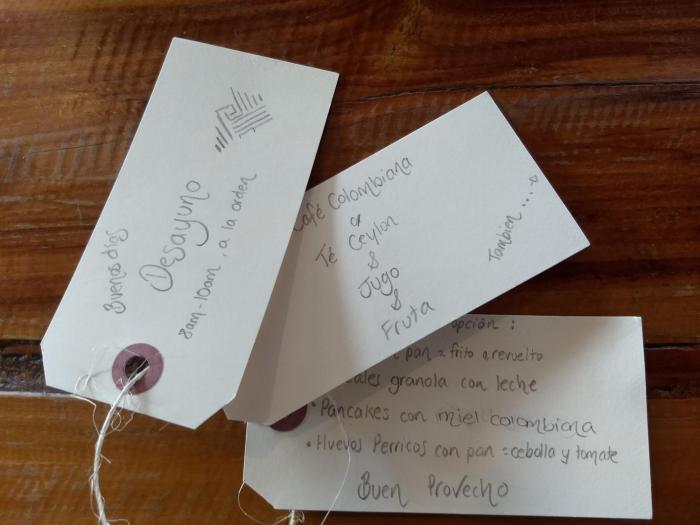 Buenos días
Desayuno
8am-10am, a la orden
Café Colombiana
or
Té Ceylon
&
Jugo
&
Fruta
Tambien ....→
opción :
pan = frito o revuelto
granola con leche
• Pancakes con miel colombiana
• Huevos Perricos con pan = cebolla y tomate
Buen Provecho